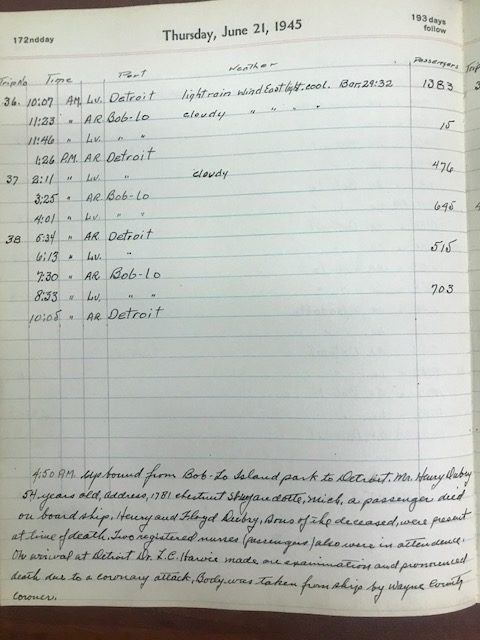 172nd day
Thursday, June 21, 1945
193 days
follow
Trip No Time Port Weather Passengers Trip
36. 10:07 AM. Lv. Detroit light rain Wind East light. cool. Bar: 29:32 1383
11:23 " AR Bob-Lo cloudy " " " "
11:46 " Lv. " " 15
1:26 P.M. AR Detroit
37 2:11 " Lv. " cloudy 476
3:25 " AR Bob-Lo
4:01 " Lv. " " 645
38 5:34 " AR Detroit
6:13 " Lv. " 515
7:30 " AR Bob-Lo
8:33 " Lv. " " 703
10:05 " AR Detroit
4:50 P.M. Up bound from Bob-Lo Island park to Detroit. Mr. Henry
54 years old, address, 1781 chestnut St, Wyandotte, Mich, a passenger died
on board ship, Henry and Floyd, Sons of the deceased, were present
at time of death. Two registered nurses (passengers) also were in attendence.
On arrival at Detroit Dr. L.C. made an examination and pronounced
death due to a coronary attack, Body was taken from ship by Wayne County
coroner.